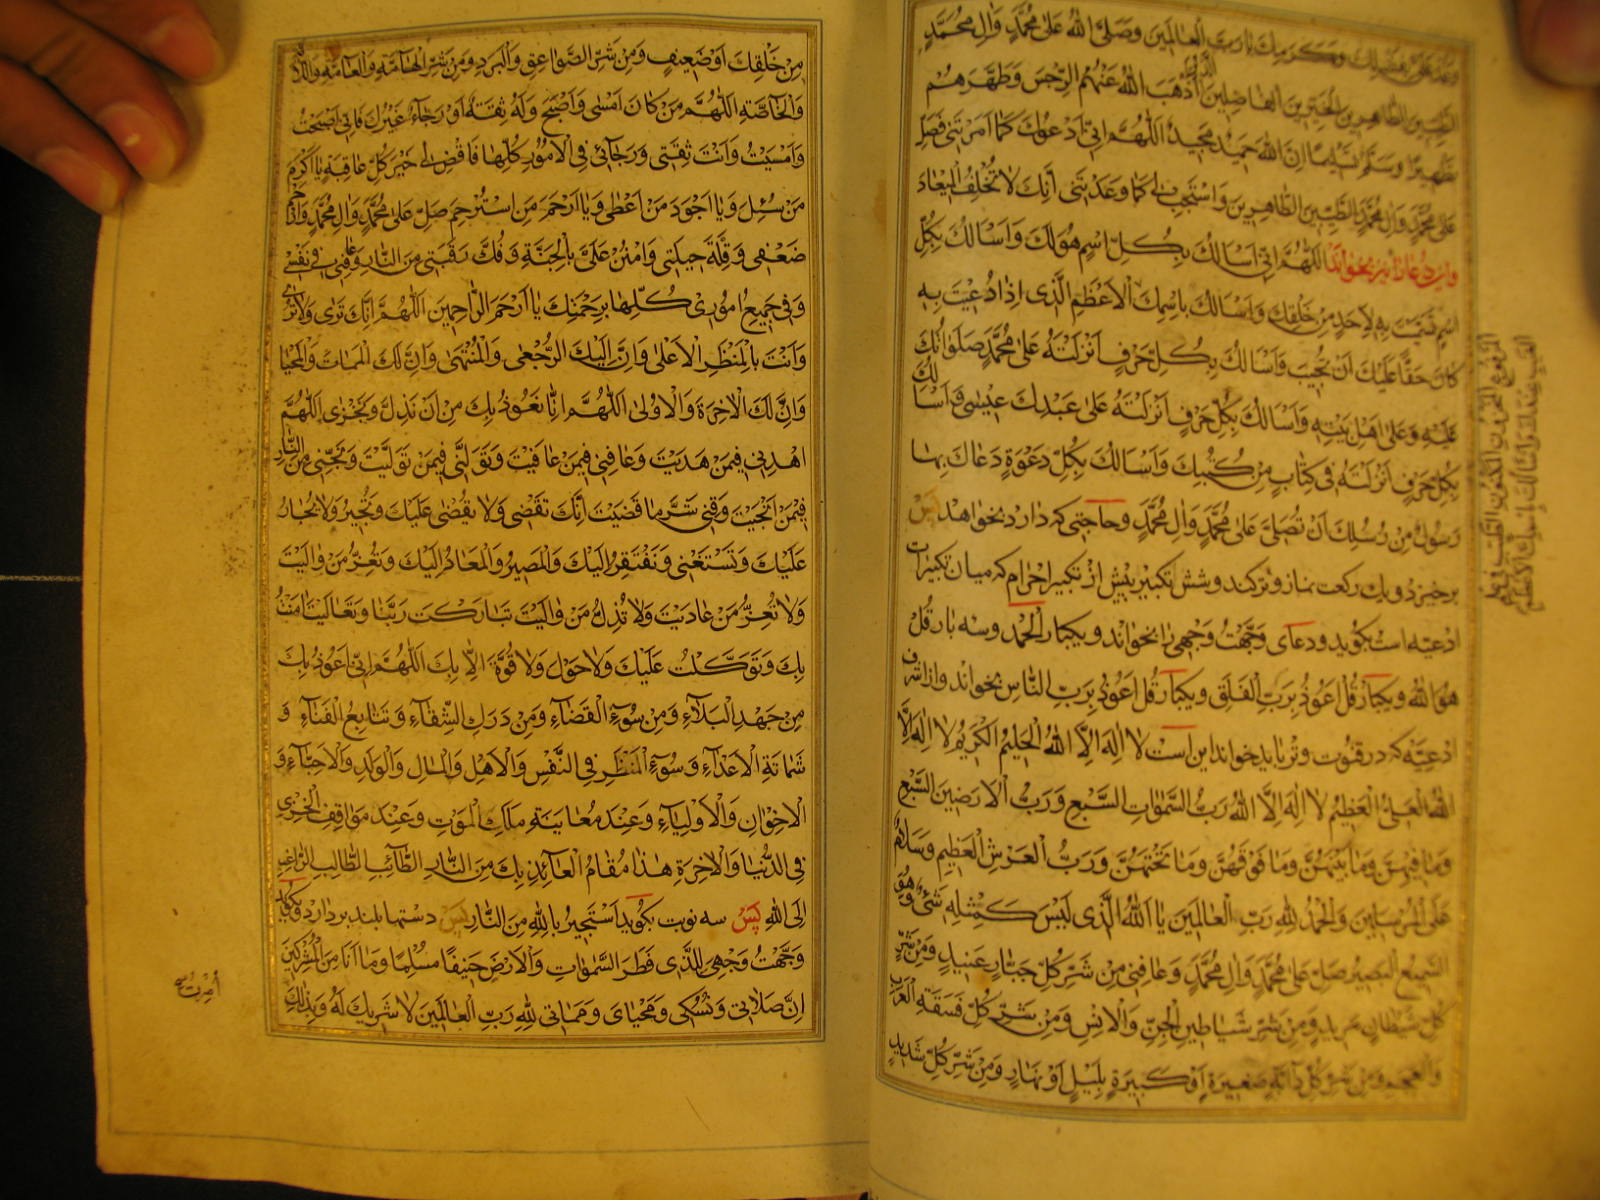 وَصَلَّى اللهُ عَلىٰ مُحَمَّدٍ وَاٰلِ مُحَمَّدٍ
الطَّيِّبينَ الطّاهِرينَ الْخَيِّرينَ الْفاضِلينَ الَّذينَ اَذْهَبَ اللهُ عَنْهُمُ الرِّجْسَ وَطَهَّرَهُمْ
تَطْهيرًا وَسَلَّمَ تَسْليمًا اِنَّ اللهَ حَميدٌ مَجيدٌ اَللّٰهُمَّ اِنّى اَدْعُوكَ كَما اَمَرْتَنى فَصَلِّ
عَلىٰ مُحَمَّدٍ وَاٰلِ مُحَمَّدٍ الطَّيِّبينَ الطّاهِرينَ وَاسْتَجِبْ لى كَما وَعَدْتَنى اِنَّكَ لا تُخْلِفُ الْميعادَ
واين دعا را نيز بخواند اَللّٰهُمَّ اِنّى اَسْاَلُكَ بِكُلِّ اسْمٍ هُوَ لَكَ وَاَسْاَلُكَ بِكُلِّ
اسْمٍ دُعيتَ بِهِ لِاَحَدٍ مِنْ خَلْقِكَ وَاَسْاَلُكَ بِاسْمِكَ الْاَعْظَمِ الَّذى اِذا دُعيتَ بِهِ
كانَ حَقًّا عَلَيْكَ اَنْ تُجيبَ وَاَسْاَلُكَ بِكُلِّ حَرْفٍ اَنْزَلْتَهُ عَلىٰ مُحَمَّدٍ صَلَواتُكَ
عَلَيْهِ وَعَلىٰ اَهْلِ بَيْتِهِ وَاَسْاَلُكَ بِكُلِّ حَرْفٍ اَنْزَلْتَهُ عَلىٰ عَبْدِكَ عيسىٰ وَاَسْاَلُكَ
بِكُلِّ حَرْفٍ اَنْزَلْتَهُ فى كِتابٍ مِنْ كُتُبِكَ وَاَسْاَلُكَ بِكُلِّ دَعْوَةٍ دَعاكَ بِها
رَسُولٌ مِنْ رُسُلِكَ اَنْ تُصَلِّىَ عَلىٰ مُحَمَّدٍ وَاٰلِ مُحَمَّدٍ وحاجتى كه دارد بخواهد پس
برخيزد ويك ركعت نماز وتر كند وشش تكبير پيش از تكبير احرام كه ميان تكبيرات
ادعيه است بگويد ودعاى وَجَّهْتُ وَجْهِىَ را بخواند ويكبار الحمد وسه بار قُلْ
هُوَ اللهُ ويكبار قُلْ اَعُوذُ بِرَبِّ الْفَلَقِ ويكبار قُلْ اَعُوذُ بِرَبِّ النّاسِ بخواند واز اشرف
ادعيّه كه در قنوت وتر بايد خواند اين است لا اِلٰهَ اِلَّا اللهُ الْحَليمُ الْكَريمُ لا اِلٰهَ اِلَّا
اللهُ الْعَلِىُّ الْعَظيمُ لا اِلٰهَ اِلَّا اللهُ رَبُّ السَّمٰواتِ السَّبْعِ وَرَبُّ الْاَرَضينَ السَّبْعِ
وَما فيهِنَّ وَما بَيْنَهُنَّ وَما فَوْقَهُنَّ وَما تَحْتَهُنَّ وَرَبُّ الْعَرْشِ الْعَظيمِ وَسَلامٌ
عَلَى الْمُرْسَلينَ وَالْحَمْدُ لِلّٰهِ رَبِّ الْعالَمينَ يا اَللهُ الَّذى لَيْسَ كَمِثْلِهِ شَىْءٌ وَهُوَ
السَّميعُ الْبَصيرُ صَلِّ عَلىٰ مُحَمَّدٍ وَاٰلِ مُحَمَّدٍ وَعافِنى مِنْ شَرِّ كُلِّ جَبّارٍ عَنيدٍ وَمِنْ شَرِّ
كُلِّ شَيْطانٍ مَريدٍ وَمِنْ شَرِّ شَياطينِ الْجِنِّ وَالْاِنْسِ وَمِنْ شَرِّ كُلِّ فَسَقَةِ الْعَرَبِ
وَالْعَجَمِ وَمِنْ شَرِّ كُلِّ دابَّةٍ صَغيرَةٍ اَوْ كَبيرَةٍ بِلَيْلٍ اَوْ نَهارٍ وَمِنْ شَرِّ كُلِّ شَديدٍ
مِنْ خَلْقِكَ اَوْ ضَعيفٍ وَمِنْ شَرِّ الصَّواعِقِ وَالْبَرَدِ وَمِنْ شَرِّ الْهامَّةِ وَالْعامَّةِ
وَالْخاصَّةِ اَللّٰهُمَّ مَنْ كانَ اَمْسىٰ وَاَصْبَحَ وَلَهُ ثِقَةٌ اَوْ رَجاءٌ غَيْرُكَ فَاِنّى اَصْبَحْتُ
وَاَمْسَيْتُ وَاَنْتَ ثِقَتى وَرَجائى فِى الْاُمُورِ كُلِّها فَاقْضِ لى خَيْرَ كُلِّ عافِيَةٍ يا اَكْرَمَ
مَنْ سُئِلَ وَيا اَجْوَدَ مَنْ اَعْطىٰ وَيا اَرْحَمَ مَنِ اسْتُرْحِمَ صَلِّ عَلىٰ مُحَمَّدٍ وَاٰلِ مُحَمَّدٍ وَارْحَمْ
ضَعْفى وَقِلَّةَ حيلَتى وَامْنُنْ عَلَىَّ بِالْجَنَّةِ وَفُكَّ رَقَبَتى مِنَ النّارِ وَعافِنى فى نَفْسى
وَفى جَميعِ اُمُورى كُلِّها بِرَحْمَتِكَ يا اَرْحَمَ الرّاحِمينَ اَللّٰهُمَّ اِنَّكَ تَرىٰ وَلا تُرىٰ
وَاَنْتَ بِالْمَنْظَرِ الْاَعْلىٰ وَاِنَّ اِلَيْكَ الرُّجْعىٰ وَالْمُنْتَهىٰ وَاِنَّ لَكَ الْمَماتَ وَالْمَحْيا
وَاِنَّ لَكَ الْاٰخِرَةَ وَالْاُولىٰ اَللّٰهُمَّ اِنّا نَعُوذُ بِكَ مِنْ اَنْ نَذِلَّ وَنَخْزىٰ اَللّٰهُمَّ
اهْدِنى فيمَنْ هَدَيْتَ وَعافِنى فيمَنْ عافَيْتَ وَتَوَلَّنى فيمَنْ تَوَلَّيْتَ وَنَجِّنى مِنَ النّارِ
فيمَنْ اَنْجَيْتَ وَقِنى شَرَّ ما قَضَيْتَ اِنَّكَ تَقْضى وَلا يُقْضىٰ عَلَيْكَ وَتُجيرُ وَلا يُجارُ
عَلَيْكَ وَتَسْتَغْنى وَنَفْتَقِرُ اِلَيْكَ وَالْمَصيرُ وَالْمَعادُ اِلَيْكَ وَتُعِزُّ مَنْ والَيْتَ
وَلا تُعِزُّ مَنْ عادَيْتَ وَلا تُذِلُّ مَنْ والَيْتَ تَبارَكْتَ رَبَّنا وَتَعالَيْتَ اٰمَنْتُ
بِكَ وَتَوَكَّلْتُ عَلَيْكَ وَلا حَوْلَ وَلا قُوَّةَ اِلّا بِكَ اَللّٰهُمَّ اِنّى اَعُوذُ بِكَ
مِنْ جَهْدِ الْبَلاءِ وَمِنْ سُوءِ الْقَضاءِ وَمِنْ دَرَكِ الشَّقاءِ وَتَتابُعِ الْفَناءِ وَ
شَماتَةِ الْاَعْداءِ وَسُوءِ الْمَنْظَرِ فِى النَّفْسِ وَالْاَهْلِ وَالْمالِ وَالْوَلَدِ وَالْاَحِبّاءِ وَ
الْاِخْوانِ وَالْاَوْلِياءِ وَعِنْدَ مُعايَنَةِ مَلَكِ الْمَوْتِ وَعِنْدَ مَواقِفِ الْخِزْىِ
فِى الدُّنْيا وَالْاٰخِرَةِ هٰذا مَقامُ الْعائِذِ بِكَ مِنَ النّارِ التّائِبِ الطّالِبِ الرّاغِبِ
اِلَى اللهِ پس سه نوبت بگويد اَسْتَجيرُ بِاللهِ مِنَ النّارِ پس دستها بلند بردارد وبگويد
وَجَّهْتُ وَجْهِىَ لِلَّذى فَطَرَ السَّمٰواتِ وَالْاَرْضَ حَنيفًا مُسْلِمًا وَما اَنَا مِنَ الْمُشْرِكينَ
اِنَّ صَلاتى وَنُسُكى وَمَحْياىَ وَمَماتى لِلّٰهِ رَبِّ الْعالَمينَ لا شَريكَ لَهُ وَبِذٰلِكَ
اُمِرْتُ